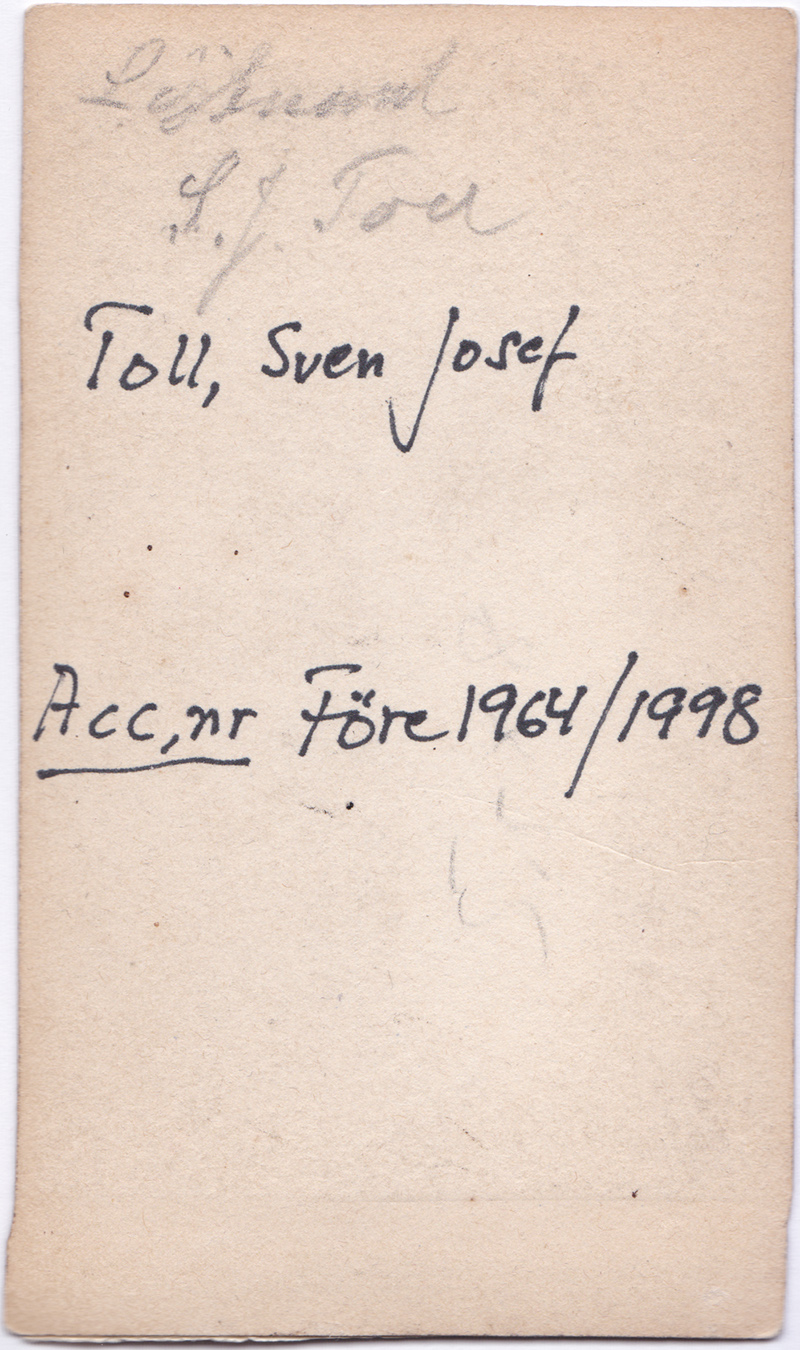 S. J. Toll
Toll, Sven Josef
Acc,nr Före 1964/1998